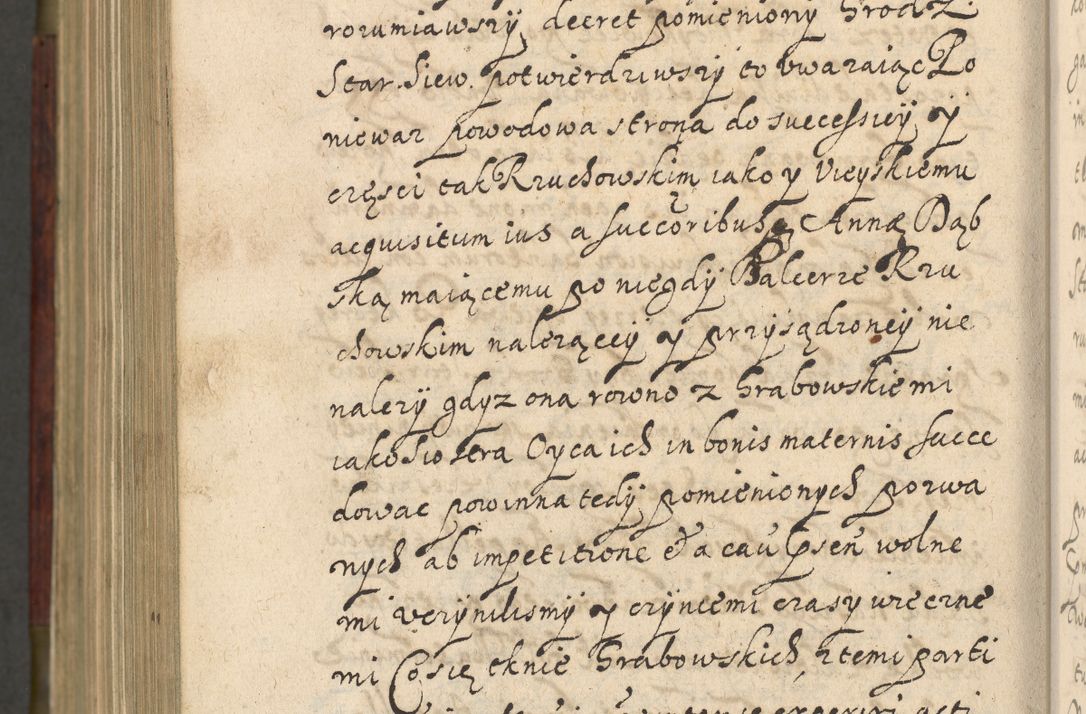 rozumiawszÿ decret pomienionÿ Grodz.
Star. Siew. potwierdziwszÿ to vwazaiąc Po
niewaz powodowa strona do successieÿ y
częsci tak Rzuchowskim iako y Vieyskiemu
acquisitum ius a succęoribus Annæ Dąb
ską maiącemu po niegdÿ Balcerze Rzu
chowskim naleząceÿ y przÿsądzoneÿ nie
nalezÿ gdyz ona rowno z Grabowskiemi
iako Siostra Oyca ich in bonis maternis succe
dowac powinna tedÿ pomienionych pozwa
nych ab impetitione et a causa psen wolne
mi vczÿnilismÿ y czÿnięmi czasÿ wieczne
mi Co się tknie Grabowskich, z temi parti